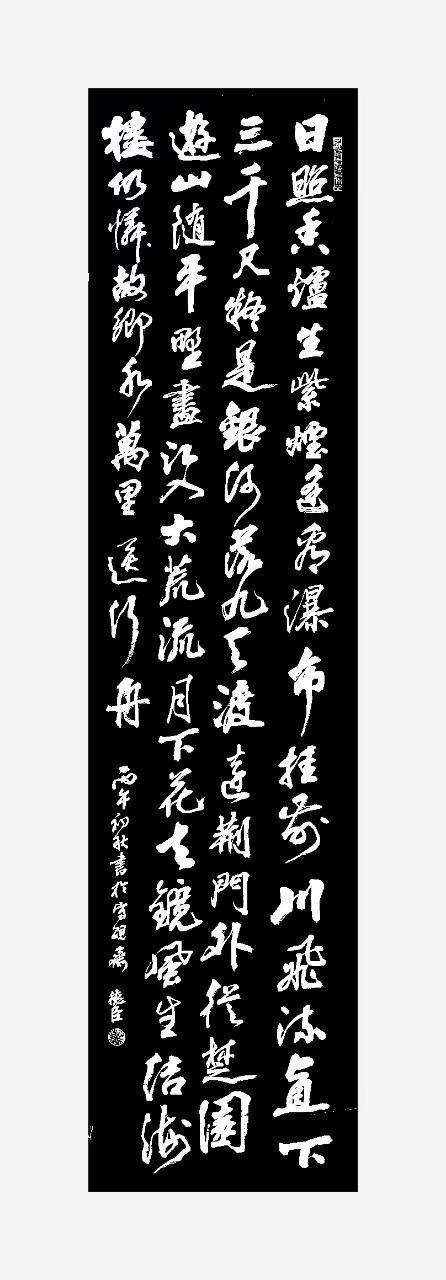 日照香爐生紫煙遙看瀑布挂前川飛流直下
三千尺疑是銀河落九天渡遠荆門外從楚國
遊山隨平野盡江入大荒流月下花天鏡風生结海
樓仍憐故鄉水萬里送行舟
丙午初秋書於雪硯齋